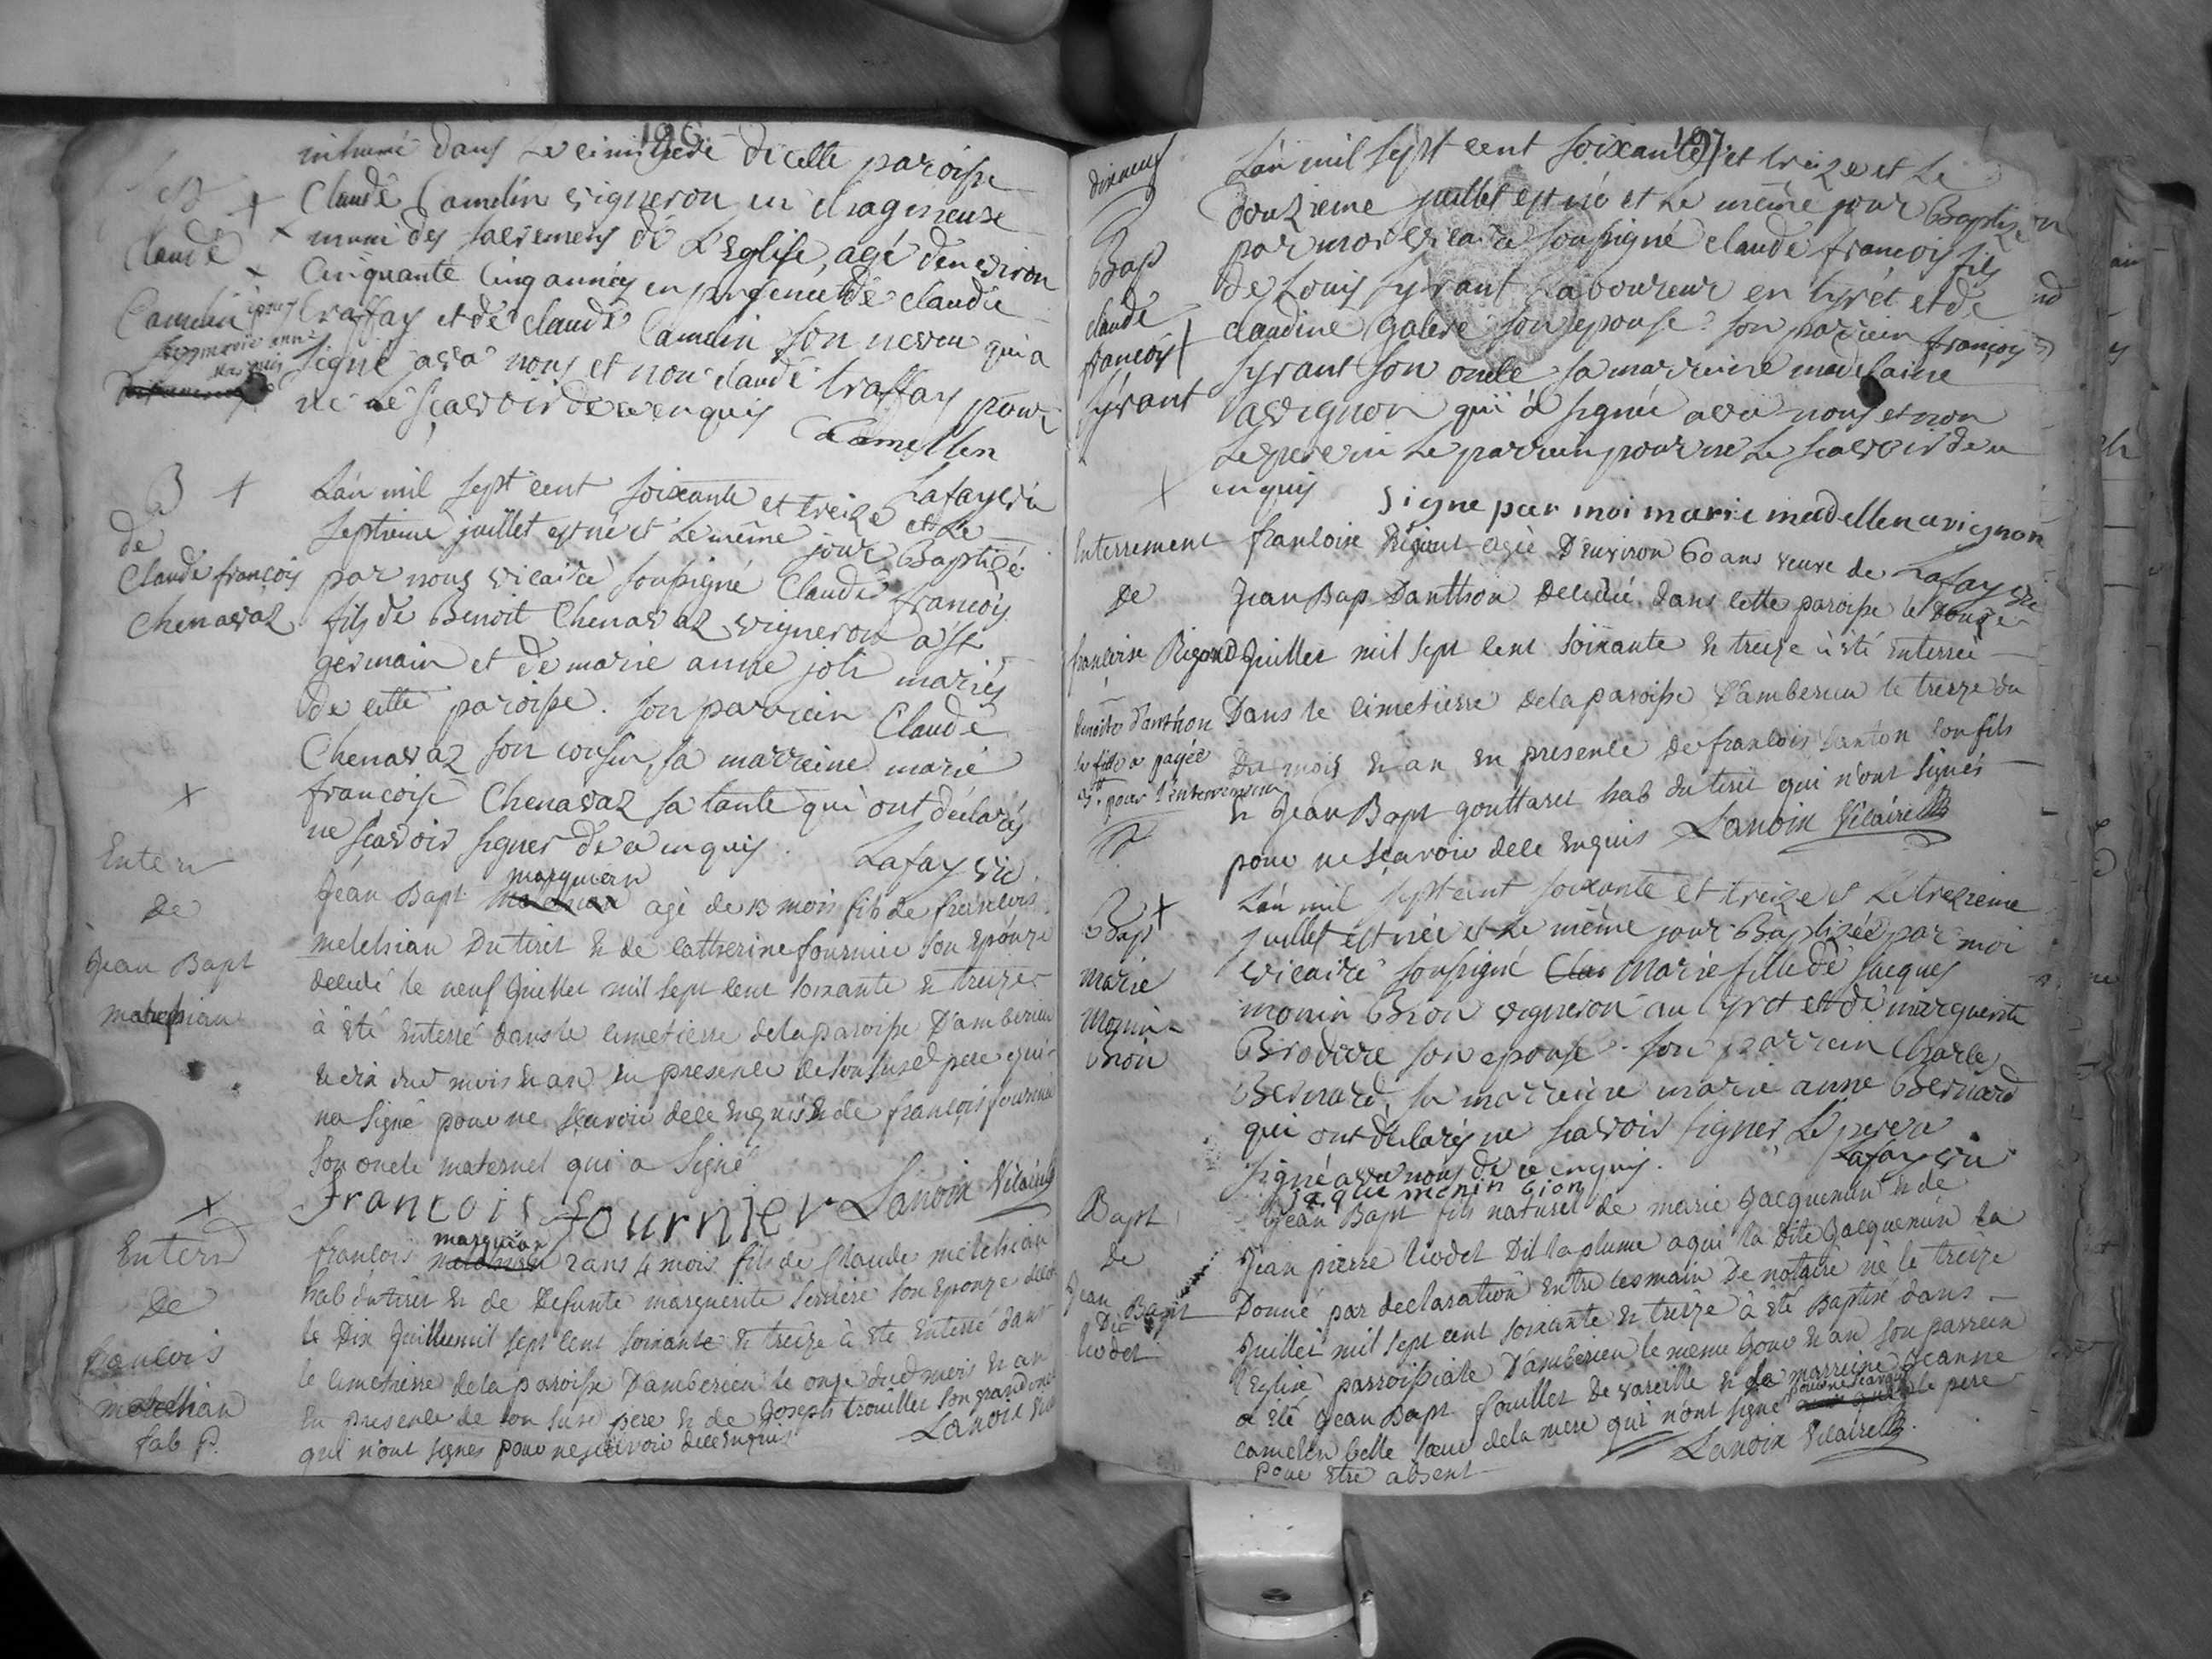 196
inhumé dans Le cimitiere dicelle paroisse
Claude Camelin vigneron en chagneuse
muni des sacremens de L'Eglise, agé denviron
Cinquante Cinq années en presence de claude
traffay et de claude Camelin son neveu qui a
signé avec nous et non claude traffay pour
ne Le sçavoir de ce enquis
Camellen
Lafay vic
Claude
Camelin
B
de
Claude françois
Chenavaz
L'an mil sept cent soixante et treize et Le
septieme juillet est né et Le même jour Baptizé
par nous vicaire soussigné Claude françois
fils de Benoit Chenavaz vigneron a st
germain et de marie anne joli mariés
de cette paroisse. son parrein Claude
Chenavaz son cousin, sa marreine marie
françoise Chenavaz sa tante qui ont déclarés
ne sçavoir signer de ce enquis. Lafay vic
Enterr
de
Jean Bapt
melchian
marquian
Jean Bapt melchian agé de 13 mois fils de francois
melchian Du tiret & de Catherine fournier son Epouze
decedé le neuf Juillet mil sept cent soixante & treize
à été Enterré dans le cimetierre de la paroisse D'amberieu
le dix dud mois & an en presence de son susd pere qui
na signé pour ne sçavoir dece Enquis & de françois fournier
son oncle maternel qui a signé
francois fournier Lanoix Vicaire
Enterr
De
francois
melchian
marquian
francois melchian 2 ans 4 mois fils de Claude melchian
hab du tiret & de Defunte marguerite serriere son Epouze decedé
le Dix Juillet mil sept cent soixante & treize à ete Enterré dans
le cimetierre de la paroisse D'amberieu le onze dud mois & an
En presence de son susd pere & de Joseph trouillet son grand oncle
qui n'ont signes pour ne sçavoir dece Enquis Lanoix vic
197
dixneuf
Bap
claude
francois
syrant
L'an mil sept cent soixante et treize et Le
douzieme juillet est né et Le même jour Baptizé
par moi vicaire soussigné claude francois fils
de Louis syrant Laboureur en tyrét et de
claudine Galere son epouse. son parrein françois
syrant son oncle sa marreine madelaine
avignon qui a signée avec nous et non
Le pere ni Le parrein pour ne Le sçavoir de ce
enquis
signe par moi marie madellen avignon
Lafay vic
Enterrement
De
francoise Rigond
francoise Rigout agée D'environ 60 ans veuve de
Jean Bap Danthon Decedée dans cette paroisse le Douze
Juillet mil sept cent soixante & treize à été Enterrée
Dans le cimetierre dela paroisse D'amberieu le treize du
Du mois & an en presence de francois Danton son fils
& Jean Bapt gouttaret hab du tiret qui n'ont signés
pour ne sçavoir dece Enquis Lanoix Vicaire
Benoite Danthon
sa fille a payée
pour l'enterrement
Bap
marie
Monin
Brion
L'an mil sept cent soixante et treize et Le treizieme
juillet est née et Le même jour Baptizée par moi
vicaire soussigné Clau Marie fille de Jacques
monin Brion vigneron au tyret et de marguerite
Brodiere son epouse. son parrein Charle
Bernard, sa marreine marie anne Bernard
qui ont déclarés ne sçavoir signer, Le pere a
signé avec nous de ce enquis. Lafay vic
jaque monin bion
Bapt
de
Jean Bapt
Dit
liodet
Jean Bapt fils naturel de marie Jacquemin & de
Jean pierre liodet Dit laplume a qui la Dite Jacquemin la
Donné par declaration Entre les main De notaire né le treize
Juillet mil sept cent soixante & treize à été Baptisé dans
l'Eglise parroissiale D'amberieu le meme Jour & an son parrein
a été Jean Bapt fouillet De vareille & la marreine Jeanne
camelin belle sœur de la mere qui n'ont signe pour ne sçavoir le pere
pour etre absent
Lanoix Vicaire